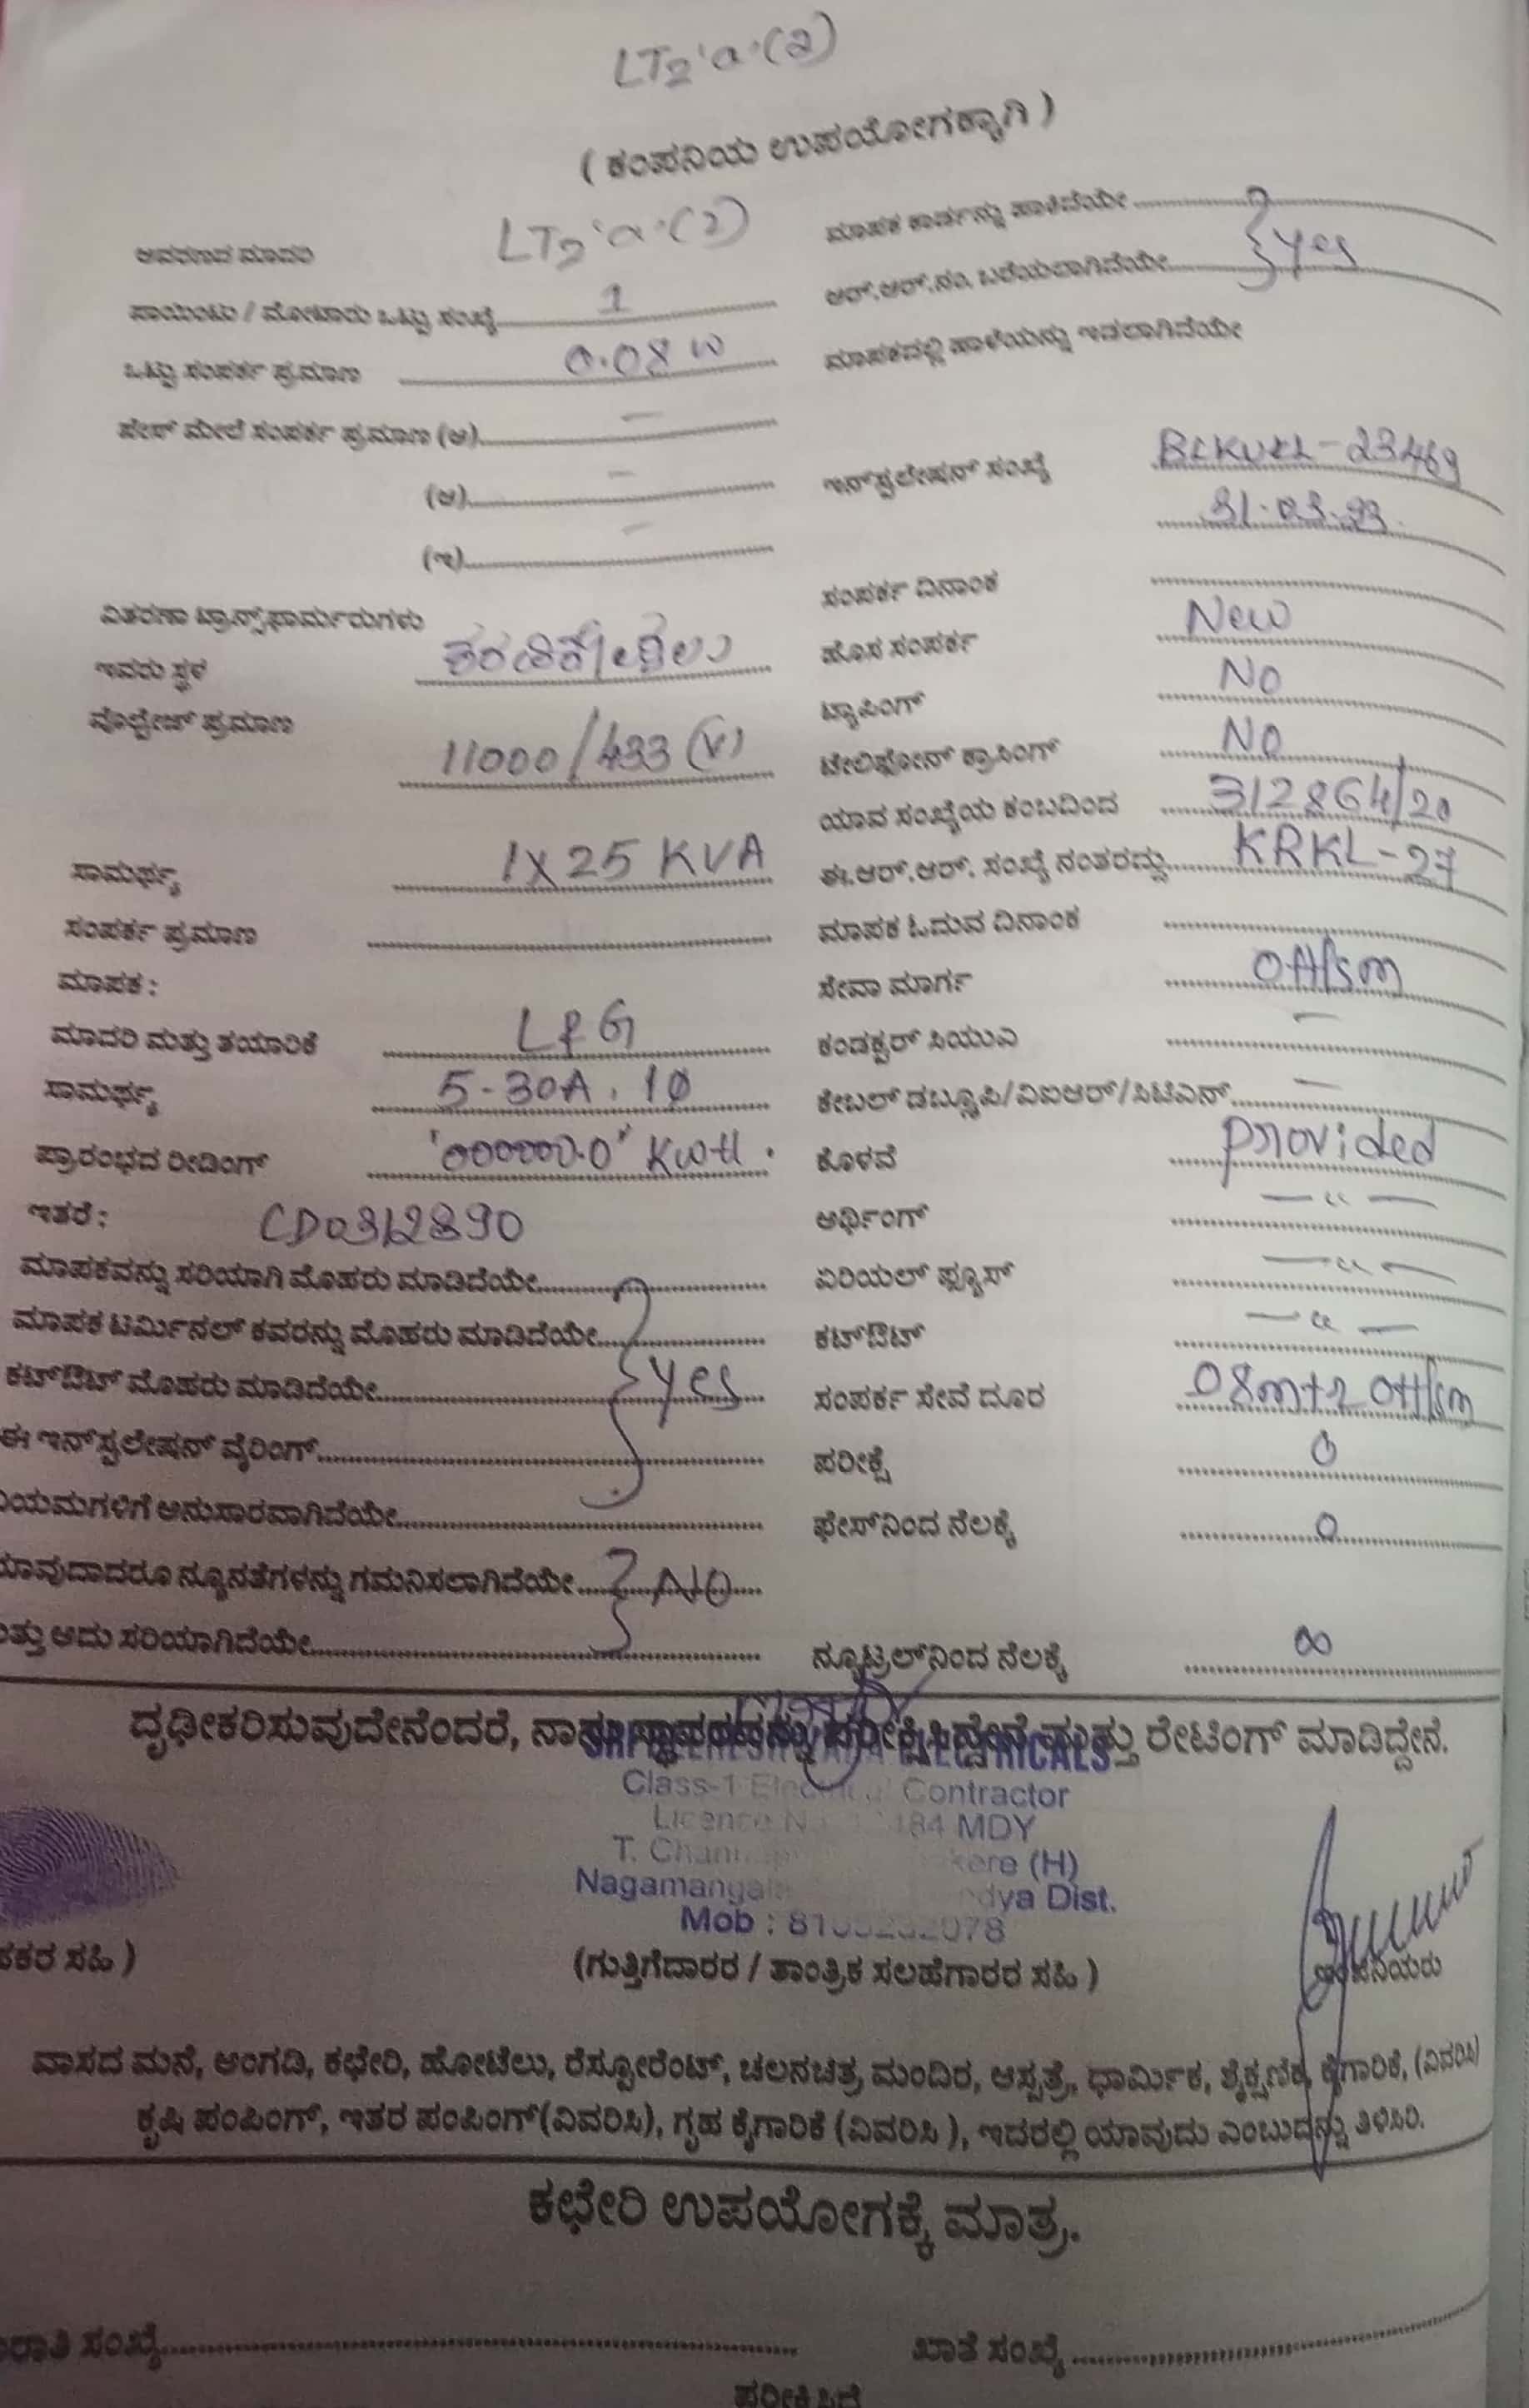 LT2'a'(2)
( ಕಂಪನಿಯ ಉಪಯೋಗಕ್ಕಾಗಿ )
ಆವರಣದ ಮಾದರಿ LT2'a'(2)
ಮಾಪಕ ಕಾರ್ಡನ್ನು ಹಾಕಿದೆಯೇ
ಆರ್.ಆರ್.ನಂ. ಬರೆಯಲಾಗಿದೆಯೇ } yes
ಪಾಯಿಂಟು / ಮೋಟಾರು ಒಟ್ಟು ಸಂಖ್ಯೆ 1
ಮಾಪಕದಲ್ಲಿ ಹಾಳೆಯನ್ನು ಇಡಲಾಗಿದೆಯೇ
ಒಟ್ಟು ಸಂಪರ್ಕ ಪ್ರಮಾಣ 0.08 W
ಪೇಸ್ ಮೇಲೆ ಸಂಪರ್ಕ ಪ್ರಮಾಣ (ಅ) –
(ಆ) –
ಇನ್‌ಸ್ಟಲೇಷನ್ ಸಂಖ್ಯೆ BLKVKL-23469
31.03.23
(ಇ) –
ಸಂಪರ್ಕ ದಿನಾಂಕ
ವಿತರಣಾ ಟ್ರಾನ್ಸ್‌ಫಾರ್ಮರುಗಳು
ಇವರು ಸ್ಥಳ
ಹೊಸ ಸಂಪರ್ಕ New
ವೊಲ್ಟೇಜ್ ಪ್ರಮಾಣ 11000/433 (V)
ಟ್ಯಾಪಿಂಗ್ NO
ಟೇಲಿಫೋನ್ ಕ್ರಾಸಿಂಗ್ NO
ಯಾವ ಸಂಖ್ಯೆಯ ಕಂಬದಿಂದ 312864/20
ಸಾಮರ್ಥ್ಯ 1X25 KVA
ಈ.ಆರ್.ಆರ್. ಸಂಖ್ಯೆ ನಂತರದ್ದು KRKL-27
ಸಂಪರ್ಕ ಪ್ರಮಾಣ
ಮಾಪಕ ಓದುವ ದಿನಾಂಕ
ಮಾಪಕ :
ಸೇವಾ ಮಾರ್ಗ OH/sm
ಮಾದರಿ ಮತ್ತು ತಯಾರಿಕೆ L&G
ಕಂಡಕ್ಟರ್ ಸಿಯುಎ –
ಸಾಮರ್ಥ್ಯ 5-30A, 1Ø
ಕೇಬಲ್ ಡಬ್ಲ್ಯೂಪಿ/ವಿಐಆರ್/ಸಿಟಿಎನ್ –
ಪ್ರಾರಂಭದ ರೀಡಿಂಗ್ '000000.0' KWH.
ಕೊಳವೆ Provided
ಇತರೆ : CD0312890
ಆರ್ಥಿಂಗ್ —"—
ಮಾಪಕವನ್ನು ಸರಿಯಾಗಿ ಮೊಹರು ಮಾಡಿದೆಯೇ
ಏರಿಯಲ್ ಫ್ಯೂಸ್ —"—
ಮಾಪಕ ಟರ್ಮಿನಲ್ ಕವರನ್ನು ಮೊಹರು ಮಾಡಿದೆಯೇ
ಕಟ್‌ಔಟ್ —"—
ಕಟ್‌ಔಟ್ ಮೊಹರು ಮಾಡಿದೆಯೇ } yes
ಸಂಪರ್ಕ ಸೇವೆ ದೂರ 08m+2 OH/sm
ಈ ಇನ್‌ಸ್ಟಲೇಷನ್ ವೈರಿಂಗ್
ಪರೀಕ್ಷೆ 0
ಯಮಗಳಿಗೆ ಅನುಸಾರವಾಗಿದೆಯೇ
ಫೇಸ್‌ನಿಂದ ನೆಲಕ್ಕೆ 0
ಯಾವುದಾದರೂ ನ್ಯೂನತೆಗಳನ್ನು ಗಮನಿಸಲಾಗಿದೆಯೇ } NO
ತ್ತು ಅದು ಸರಿಯಾಗಿದೆಯೇ
ನ್ಯೂಟ್ರಲ್‌ನಿಂದ ನೆಲಕ್ಕೆ ∞
ದೃಢೀಕರಿಸುವುದೇನೆಂದರೆ, ನಾನು ಸ್ಥಾವರವನ್ನು ಪರೀಕ್ಷಿಸಿದ್ದೇನೆ ಮತ್ತು ರೇಟಿಂಗ್ ಮಾಡಿದ್ದೇನೆ.
ELECTRICALS
Class-1 Electrical Contractor
Licence 484 MDY
T. (H)
Nagamangala Dist.
Mob :
ಕರ ಸಹಿ )
(ಗುತ್ತಿಗೆದಾರರ / ತಾಂತ್ರಿಕ ಸಲಹೆಗಾರರ ಸಹಿ )
ವಾಸದ ಮನೆ, ಅಂಗಡಿ, ಕಛೇರಿ, ಹೋಟೆಲು, ರೆಸ್ಟೋರೆಂಟ್, ಚಲನಚಿತ್ರ ಮಂದಿರ, ಆಸ್ಪತ್ರೆ, ಧಾರ್ಮಿಕ, ಶೈಕ್ಷಣಿಕ, ಕೈಗಾರಿಕೆ, (ವಿವರಿಸಿ)
ಕೃಷಿ ಪಂಪಿಂಗ್, ಇತರ ಪಂಪಿಂಗ್(ವಿವರಿಸಿ), ಗೃಹ ಕೈಗಾರಿಕೆ (ವಿವರಿಸಿ ), ಇದರಲ್ಲಿ ಯಾವುದು ಎಂಬುದನ್ನು ತಿಳಿಸಿರಿ.
ಕಛೇರಿ ಉಪಯೋಗಕ್ಕೆ ಮಾತ್ರ.
ಸಂಖ್ಯೆ
ಖಾತೆ ಸಂಖ್ಯೆ
ಪರೀಕ್ಷಿಸಿದೆ